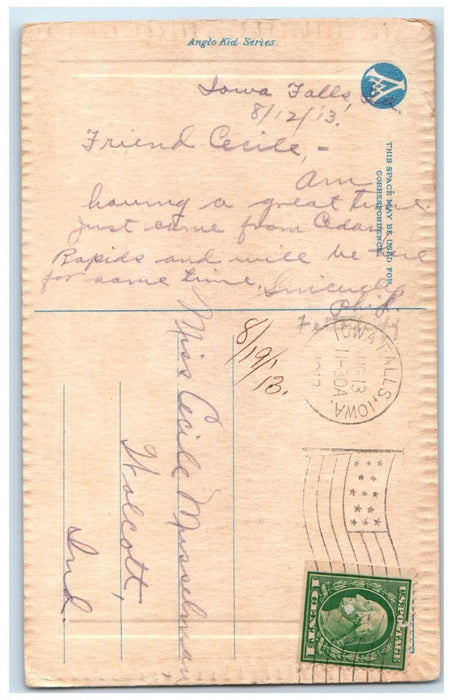 Anglo Kid Series.
Iowa Falls, Ia.
8/12/13.
Friend Cecile,-
Am
having a great time
Just came from Cedar
Rapids and will be here
for some time. Sincerely
Phil.
THIS SPACE MAY BE USED FOR
CORRESPONDENCE
8/19/13.
Miss Cecile Musselman
Wolcott,
Ind.
IOWA FALLS, IOWA.
13
11-30A
1913
U.S. POSTAGE
1 CENT 1